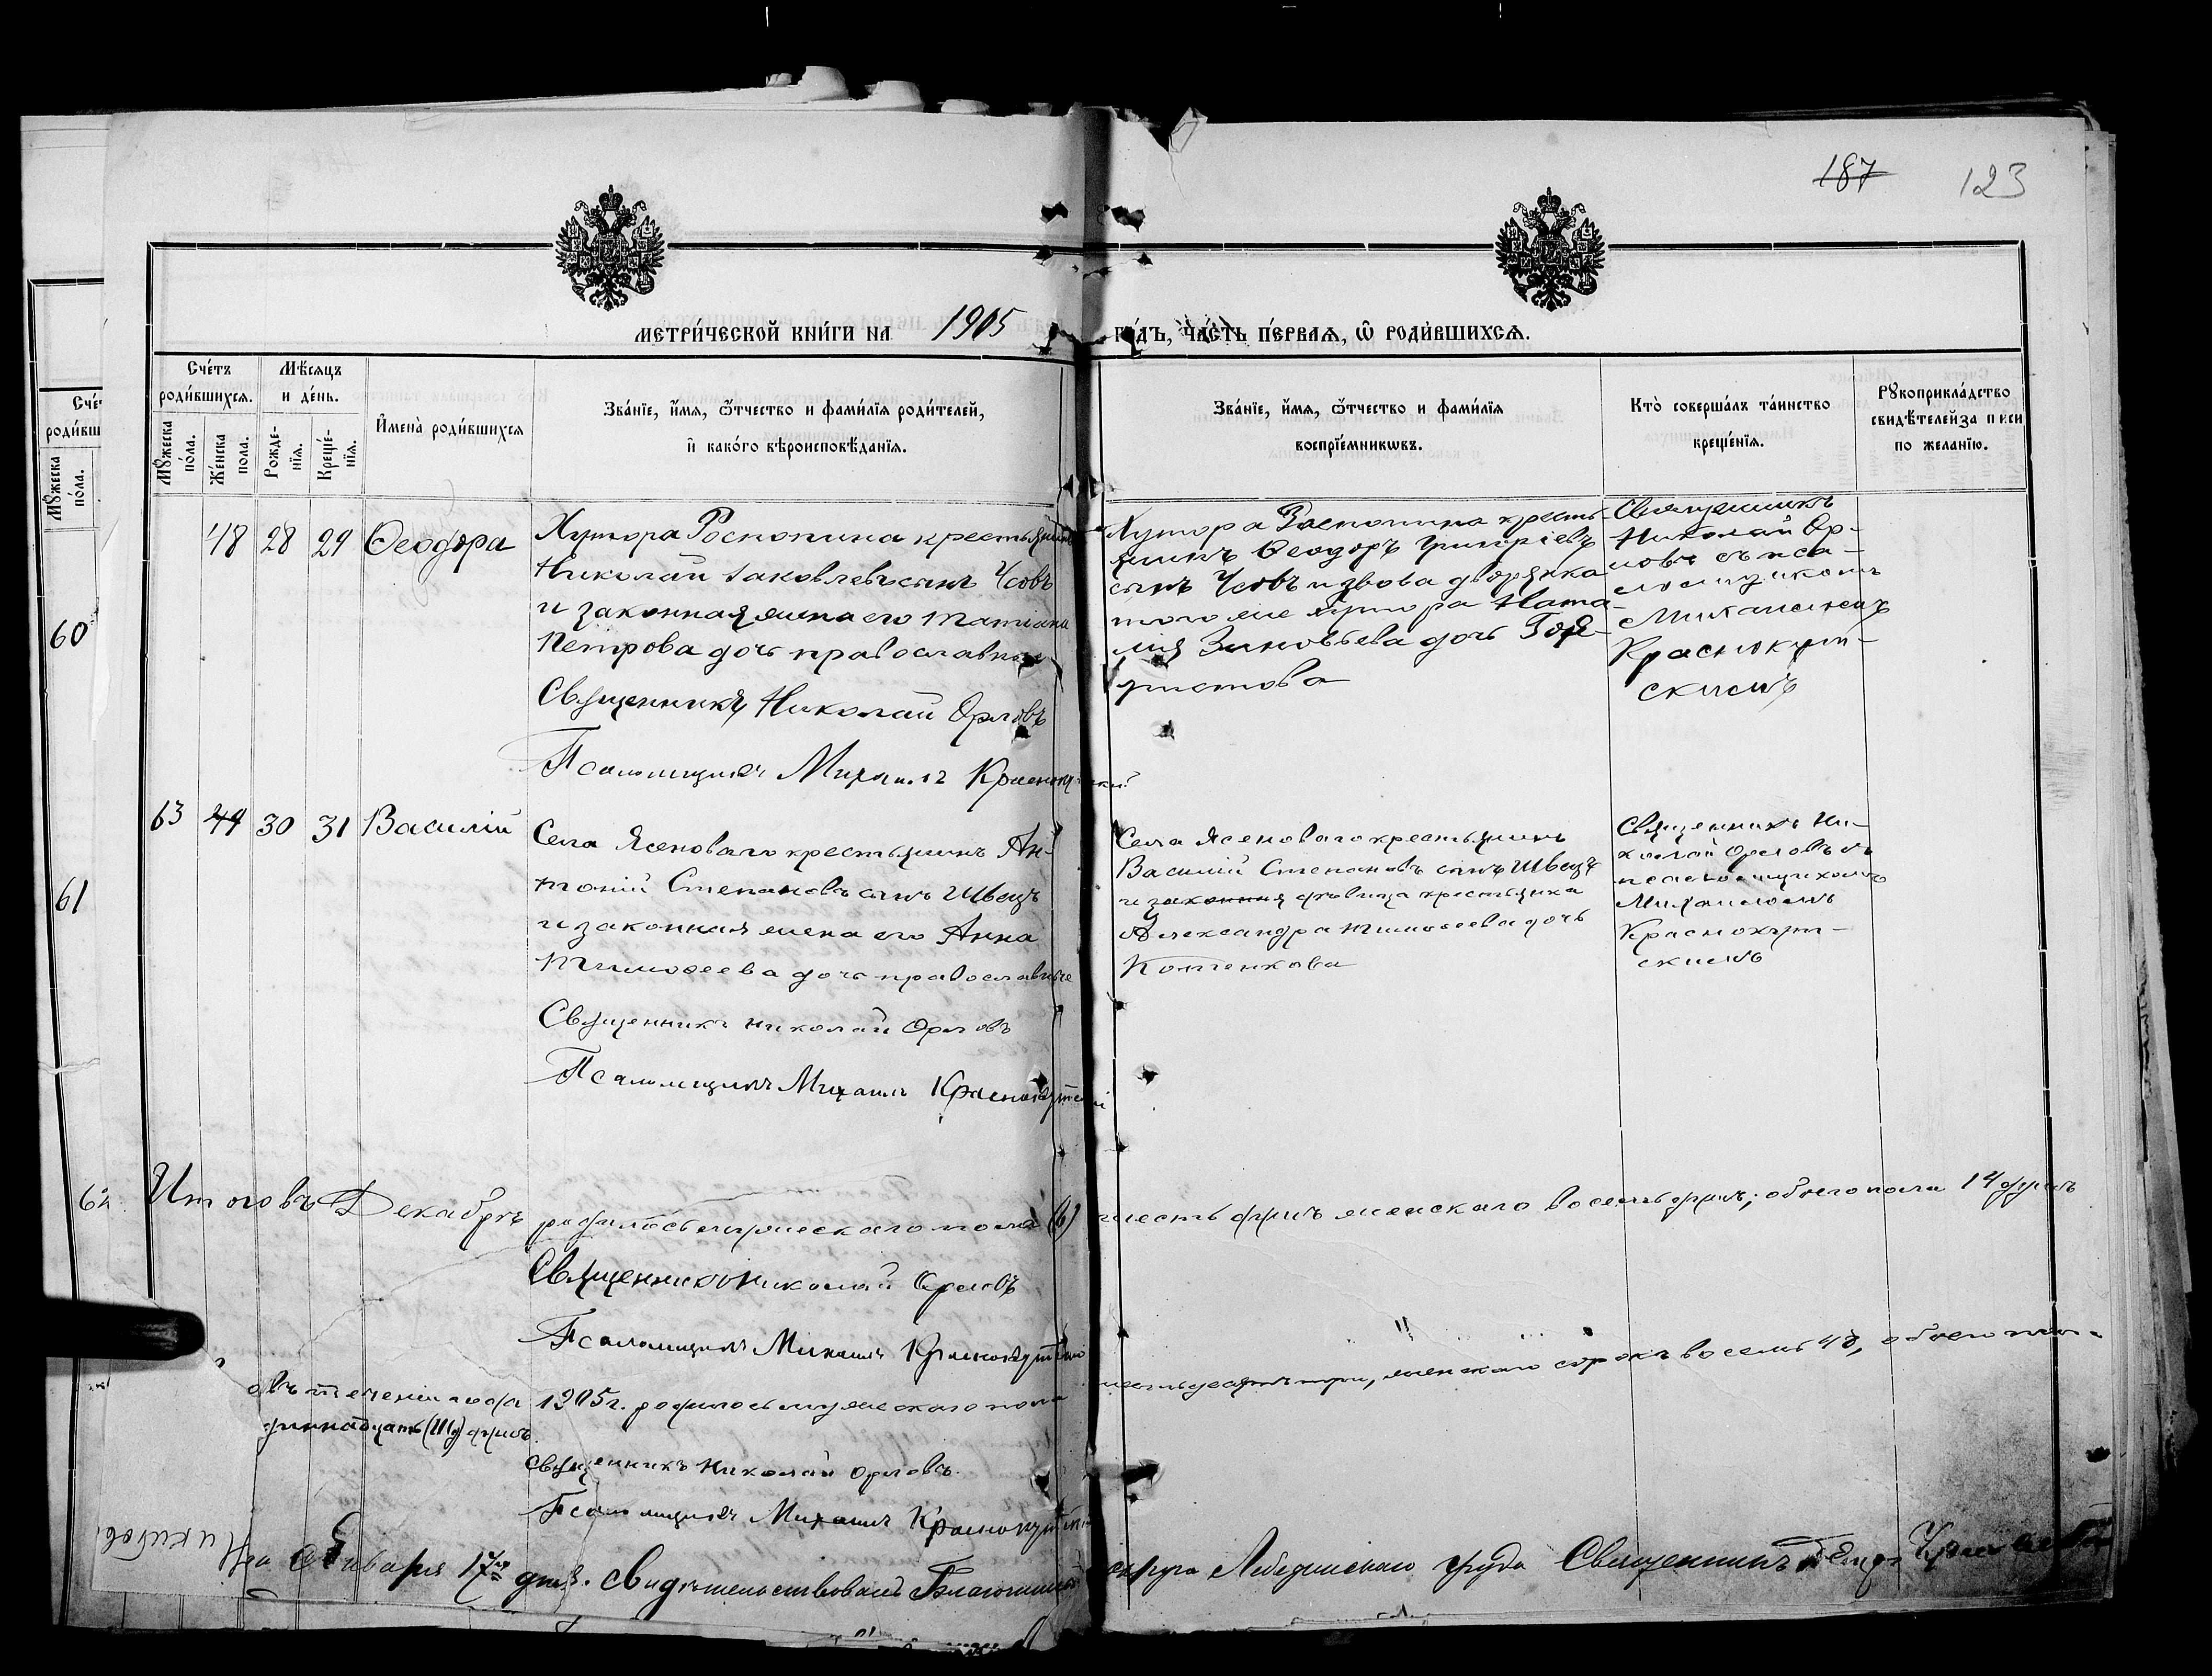 187 123
МЕТРИ́ЧЕСКОЙ КНИ́ГИ НА 1905 ГОДЪ, ЧА́СТЬ ПЕ́РВАѦ, Ѡ РОДИ́ВШИХСѦ.
Сче́тъ роди́вшихсѧ.
Мꙋ́жеска по́ла.
Же́нска пола.
Мѣ́сѧцъ и де́нь.
Рожде-нїѧ.
Креще́-нїѧ.
И҆мена̀ роди́вшихсѧ
Зва́нїе, и҆́мѧ, ѻ҆́тчество и фами́лїѧ роди́телей,
и҆ како́гѡ вѣроисповѣ́данїѧ.
Зва́нїе, и҆́мѧ, ѻ҆́тчество и фами́лїѧ
воспрїе́мникѡвъ.
Кто̀ соверша́лъ та́инство
креще́нїѧ.
Рꙋкоприкла́дство
свидѣ́телей за писи
по жела́нїю.
48 28 29 Ѳеодора
Хутора Роспопина крестьянинъ
Николай Іаковлевъ сынъ Усовъ
и законная жена его Татіана
Петрова дочь православные
Священникъ Николай Орловъ
Псаломщикъ Михаилъ Краснокутскій
Хутора Распопина кресть-
янинъ Ѳеодоръ Григоріевъ
сынъ Усовъ и вдова дворянка
того же хутора Ната-
лія Зиновьева дочь
Священникъ
Николай Ор-
ловъ съ пса-
ломщикомъ
Михаиломъ
Краснокут-
скимъ
63 49 30 31 Василій
Села Ясеноваго крестьянинъ Ан-
тоній Степановъ сынъ Швецъ
и законная жена его Анна
Тимоѳеева дочь православные
Священникъ Николай Орловъ
Псаломщикъ Михаилъ Краснокутскій
Села Ясеноваго крестьянинъ
Василій Степановъ сынъ Швецъ
и законная дѣвица крестьянка
Александра Тимоѳеева дочь
Котенкова
Священникъ Ни-
колай Орловъ съ
псаломщикомъ
Михаиломъ
Краснокут-
скимъ
Итого въ Декабрѣ родилось мужескаго пола (6) шесть душъ женскаго восемь душъ; обоего пола 14 душъ
Священникъ Николай Орловъ
Псаломщикъ Михаилъ Краснокутскій
въ теченіи года 1905 г. родилось мужескаго пола шестьдесятъ три, женскаго сорокъ восемь 48, обоего пола
одиннадцать (111) душъ.
Священникъ Николай Орловъ.
Псаломщикъ Михаилъ Краснокутскій
Января 17го дня. Свидѣтельствовалъ Благочинный округа Лебединскаго уѣзда Священникъ
Сче́
роди́вш
Мꙋ́жеска по́ла.
60
61
62